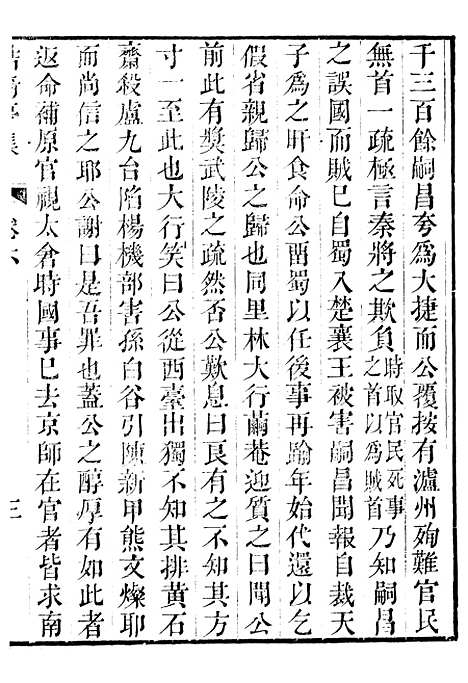 千三百餘嗣昌夸爲大捷而公覆按有瀘州殉難官民
無首一疏極言秦將之欺負時取官民死事之首以爲賊首乃知嗣昌
之誤國而賊已自蜀入楚襄王被害嗣昌聞報自裁天
子爲之旰食命公畱蜀以任後事再踰年始代還以乞
假省親歸公之歸也同里林大行繭菴迎質之曰聞公
前此有奬武陵之疏然否公歎息曰良有之不知其方
寸一至此也大行笑曰公從西臺出獨不知其排黃石
齋殺盧九台陷楊機部害孫白谷引陳新甲熊文燦耶
而尚信之耶公謝曰是吾罪也蓋公之醇厚有如此者
返命補原官視太倉時國事已去京師在官者皆求南
鮚埼亭集
卷六
三